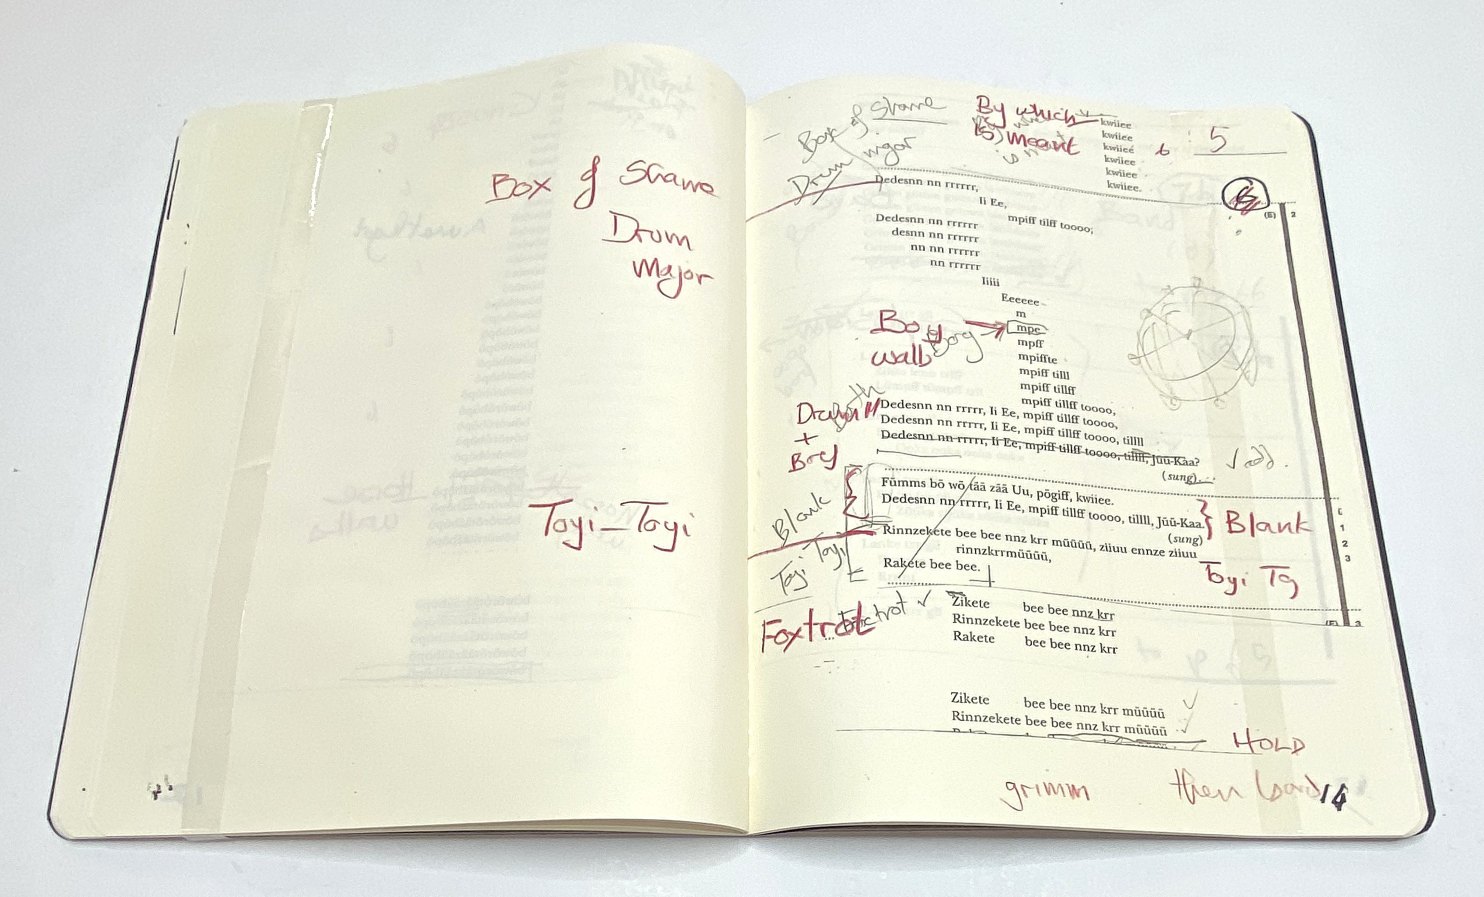 Box of Shame
Drum
Major
Toyi-Toyi
Box of Shame
Drum major
By which
is meant
5
kwiiee
kwiiee
kwiieé
kwiiee
kwiiee
kwiiee.
6
Dedesnn nn rrrrrr,
(E) 2
Ii Ee,
mpiff tilff toooo,
Dedesnn nn rrrrrr
desnn nn rrrrrr
nn nn rrrrrr
nn rrrrrr
Iiiii
Eeeeee
m
Boy
walls
Borg
mpe
mpff
mpiffte
mpiff tilll
mpiff tillff
mpiff tillff toooo,
Both
Drum M
+
Borg
Dedesnn nn rrrrr, Ii Ee, mpiff tillff toooo,
Dedesnn nn rrrrr, Ii Ee, mpiff tillff toooo, tillll
Dedesnn nn rrrrr, Ii Ee, mpiff tillff toooo, tillll, Jüü-Kaa?
(sung)
add.
Fümms bö wö tää zää Uu, pögiff, kwiiee.
Dedesnn nn rrrrrr, Ii Ee, mpiff tillff toooo, tillll, Jüü-Kaa.
(sung)
Blank
Blank
1
2
3
Rinnzekete bee bee nnz krr müüüü, ziiuu ennze ziiuu
rinnzkrrmüüüü,
Rakete bee bee.
Toyi Toyi
Toyi T
Foxtrot
Foxtrot
Zikete bee bee nnz krr
Rinnzekete bee bee nnz krr
Rakete bee bee nnz krr
(E) 3
Zikete bee bee nnz krr müüüü
Rinnzekete bee bee nnz krr müüüü
HOLD
grimm
then
14